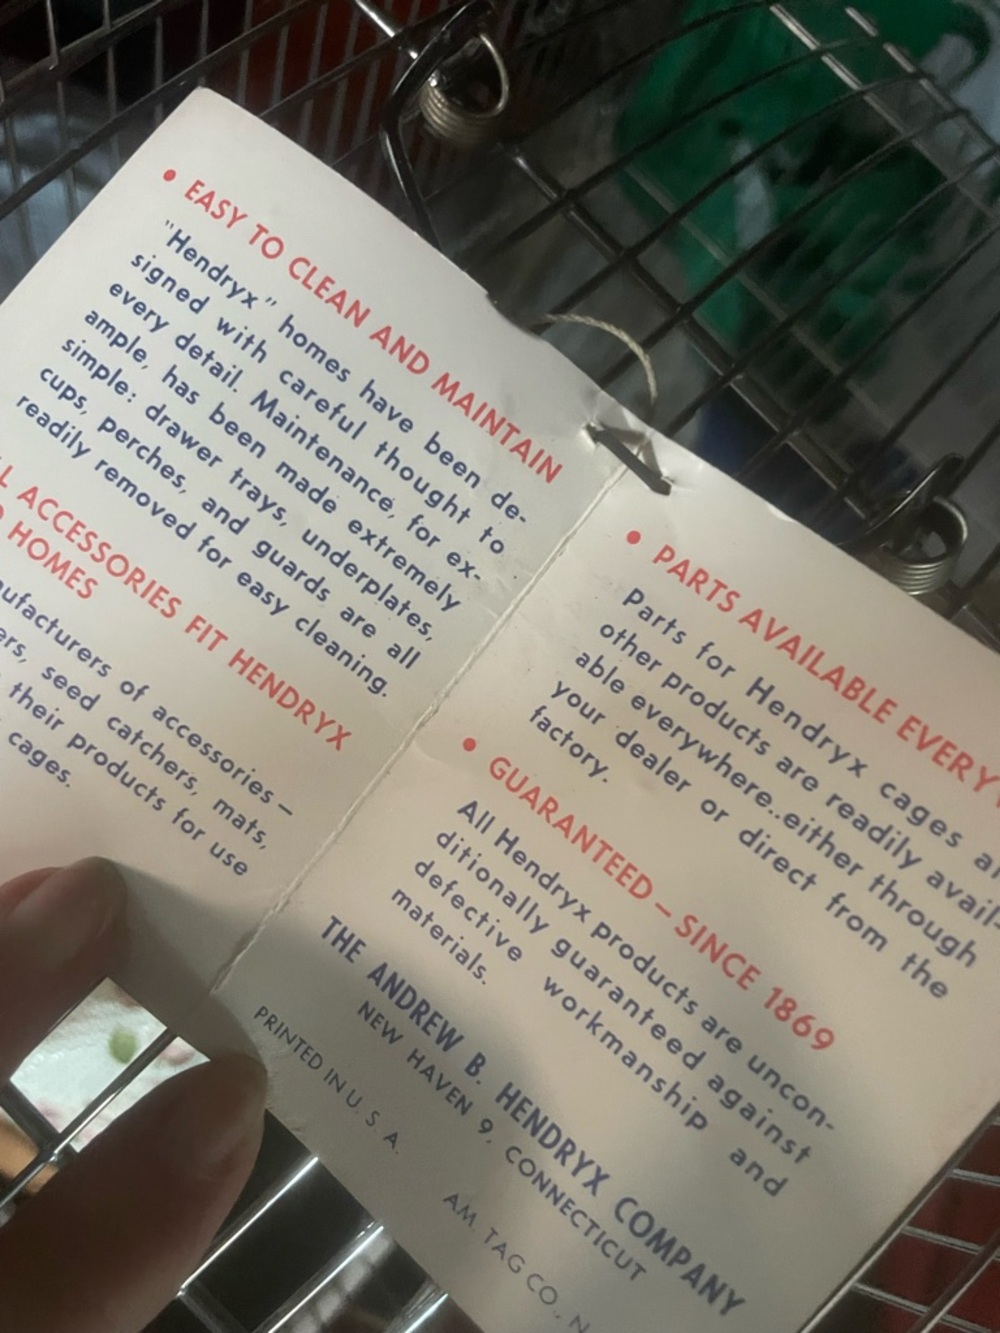 • EASY TO CLEAN AND MAINTAIN
"Hendryx" homes have been de-
signed with careful thought to
every detail. Maintenance, for ex-
ample, has been made extremely
simple: drawer trays, underplates,
cups, perches, and guards are all
readily removed for easy cleaning.
ACCESSORIES FIT HENDRYX
HOMES
of accessories —
seed catchers, mats,
their products for use
cages.
• PARTS AVAILABLE
Parts for Hendryx cages
other products are readily avail-
able everywhere..either through
your dealer or direct from the
factory.
• GUARANTEED — SINCE 1869
All Hendryx products are uncon-
ditionally guaranteed against
defective workmanship and
materials.
THE ANDREW B. HENDRYX COMPANY
NEW HAVEN 9, CONNECTICUT
PRINTED IN U. S. A.
AM. TAG CO., N